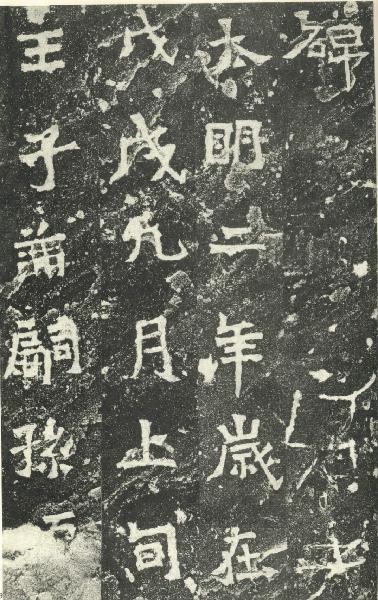 碑
大明二年歲在
戊戌九月上旬
壬子蒱嗣孫